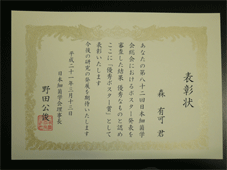 表彰状
森 有可 君
あなたの第八十二回日本細菌学
会総会におけるポスター発表を
審査した結果 優秀なものと認め
ここに「優秀ポスター賞」として
表彰いたします
今後の研究の発展を期待いたします
平成二十一年三月十三日
日本細菌学会理事長
野田公俊